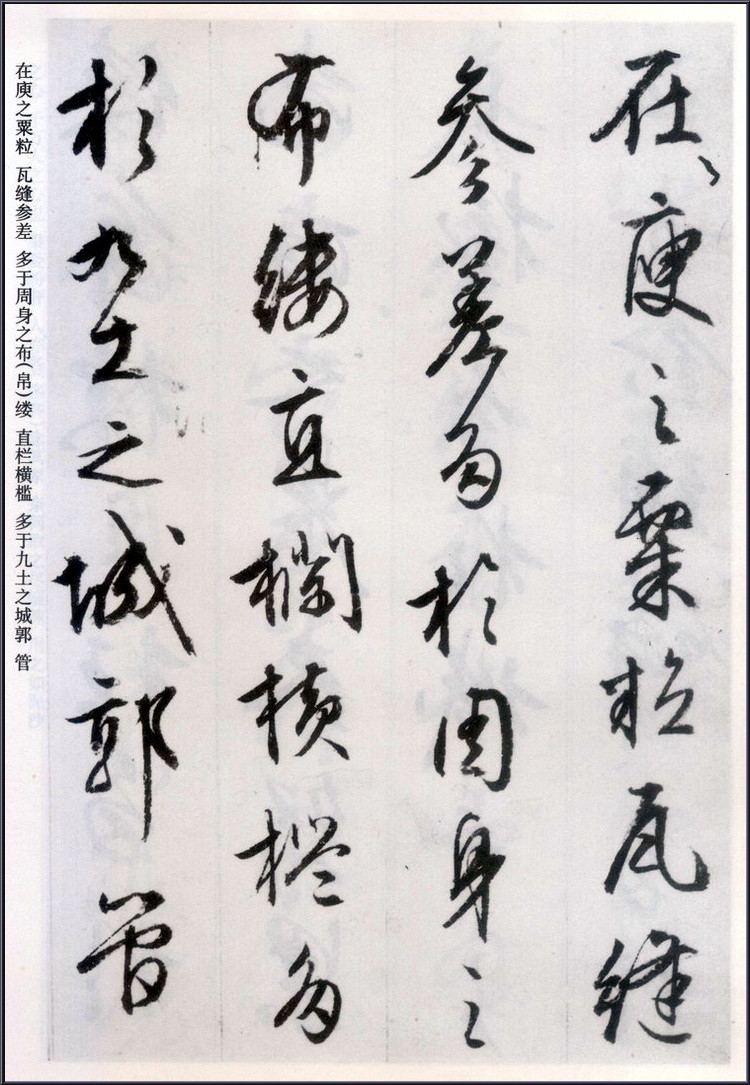 在庾之粟粒瓦縫
參差多於周身之
布縷直欄横檻多
於九土之城郭管
在庾之粟粒 瓦缝参差 多于周身之布(帛)缕 直栏横槛 多于九土之城郭 管